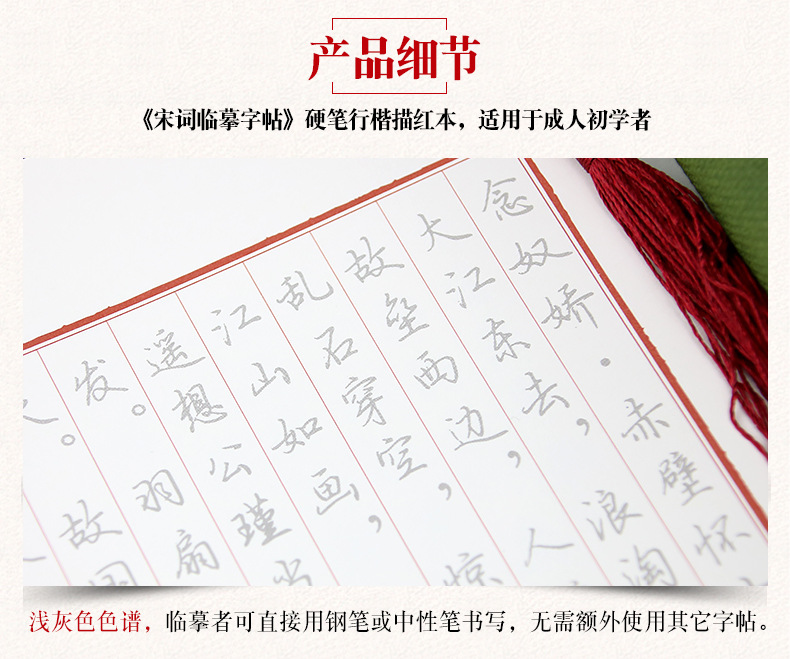 产品细节
《宋词临摹字帖》硬笔行楷描红本，适用于成人初学者
念奴娇·赤壁怀
大江东去，浪淘
故垒西边，人
乱石穿空，惊
江山如画，
遥想公瑾当
发。羽扇
。故国
浅灰色色谱，临摹者可直接用钢笔或中性笔书写，无需额外使用其它字帖。